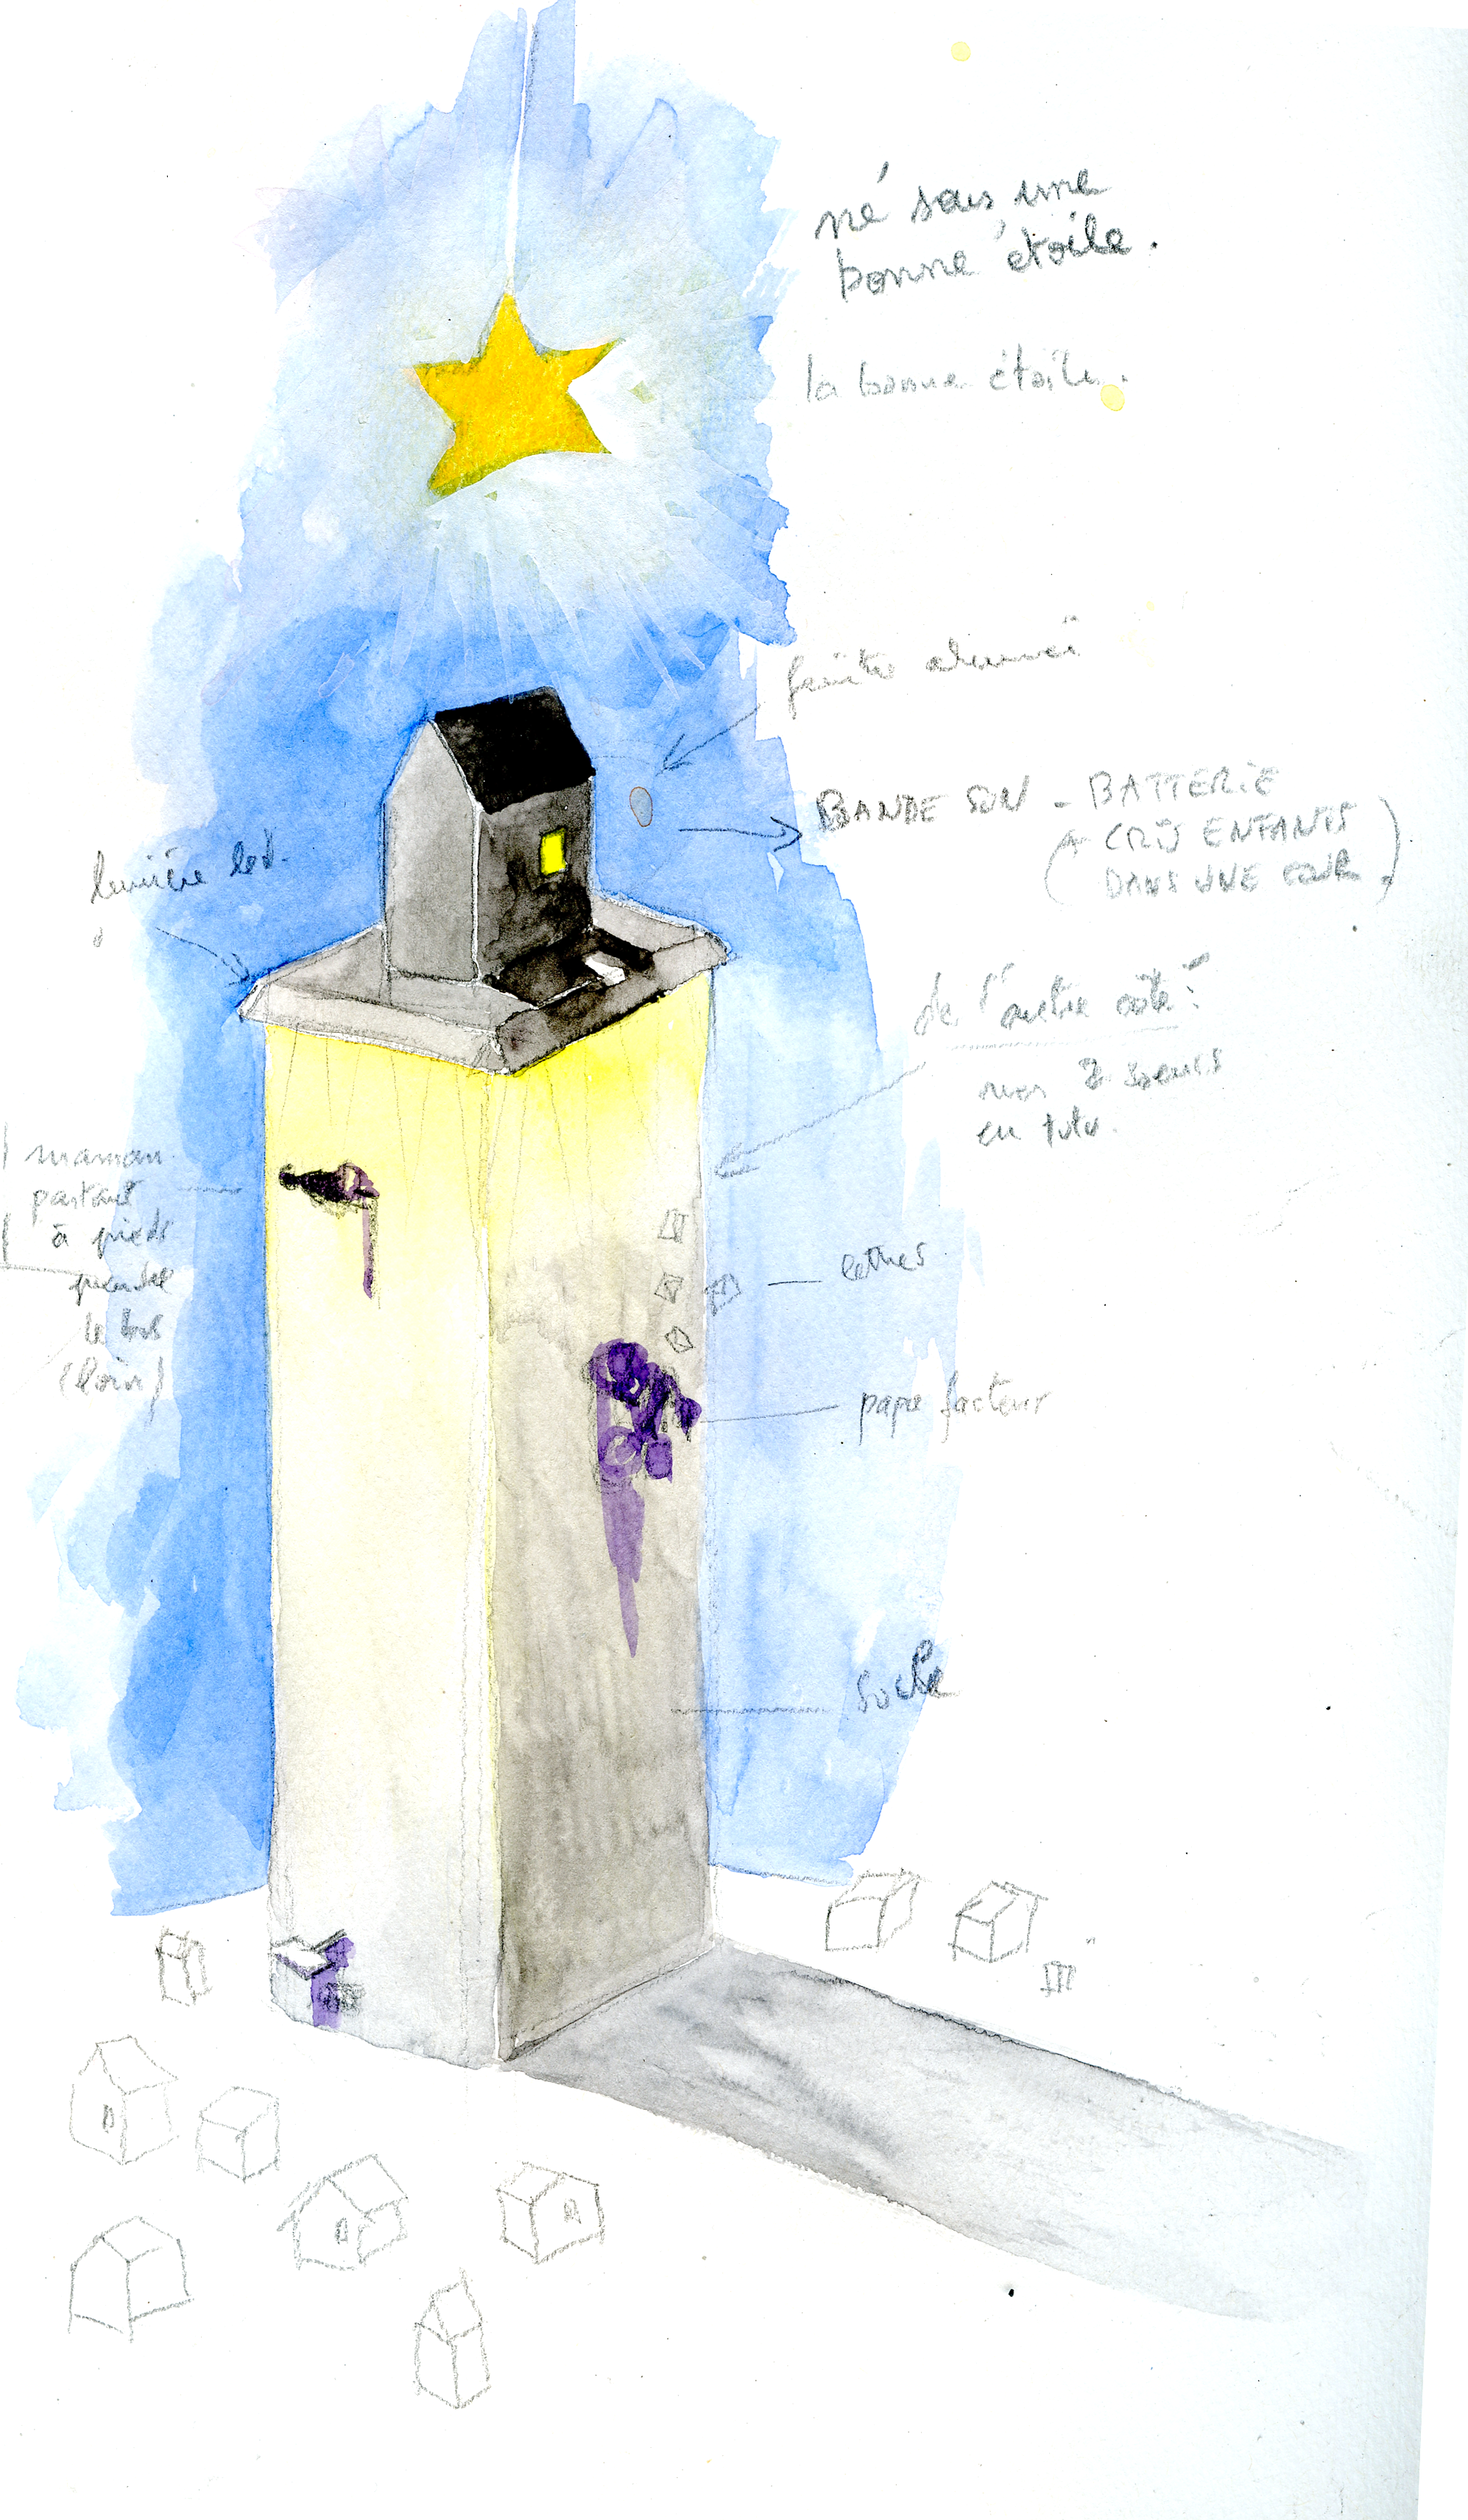 né sous une
bonne étoile.
la bonne étoile.
fenêtre
BANDE SON - BATTERIE
(+ CRIS ENFANTS
DANS UNE COUR.)
lumière led.
de l'autre côté :
mes 2 soeurs
en tutu.
maman
partant
à pieds
prendre
le bus
(loin)
lettres
papa facteur
socle